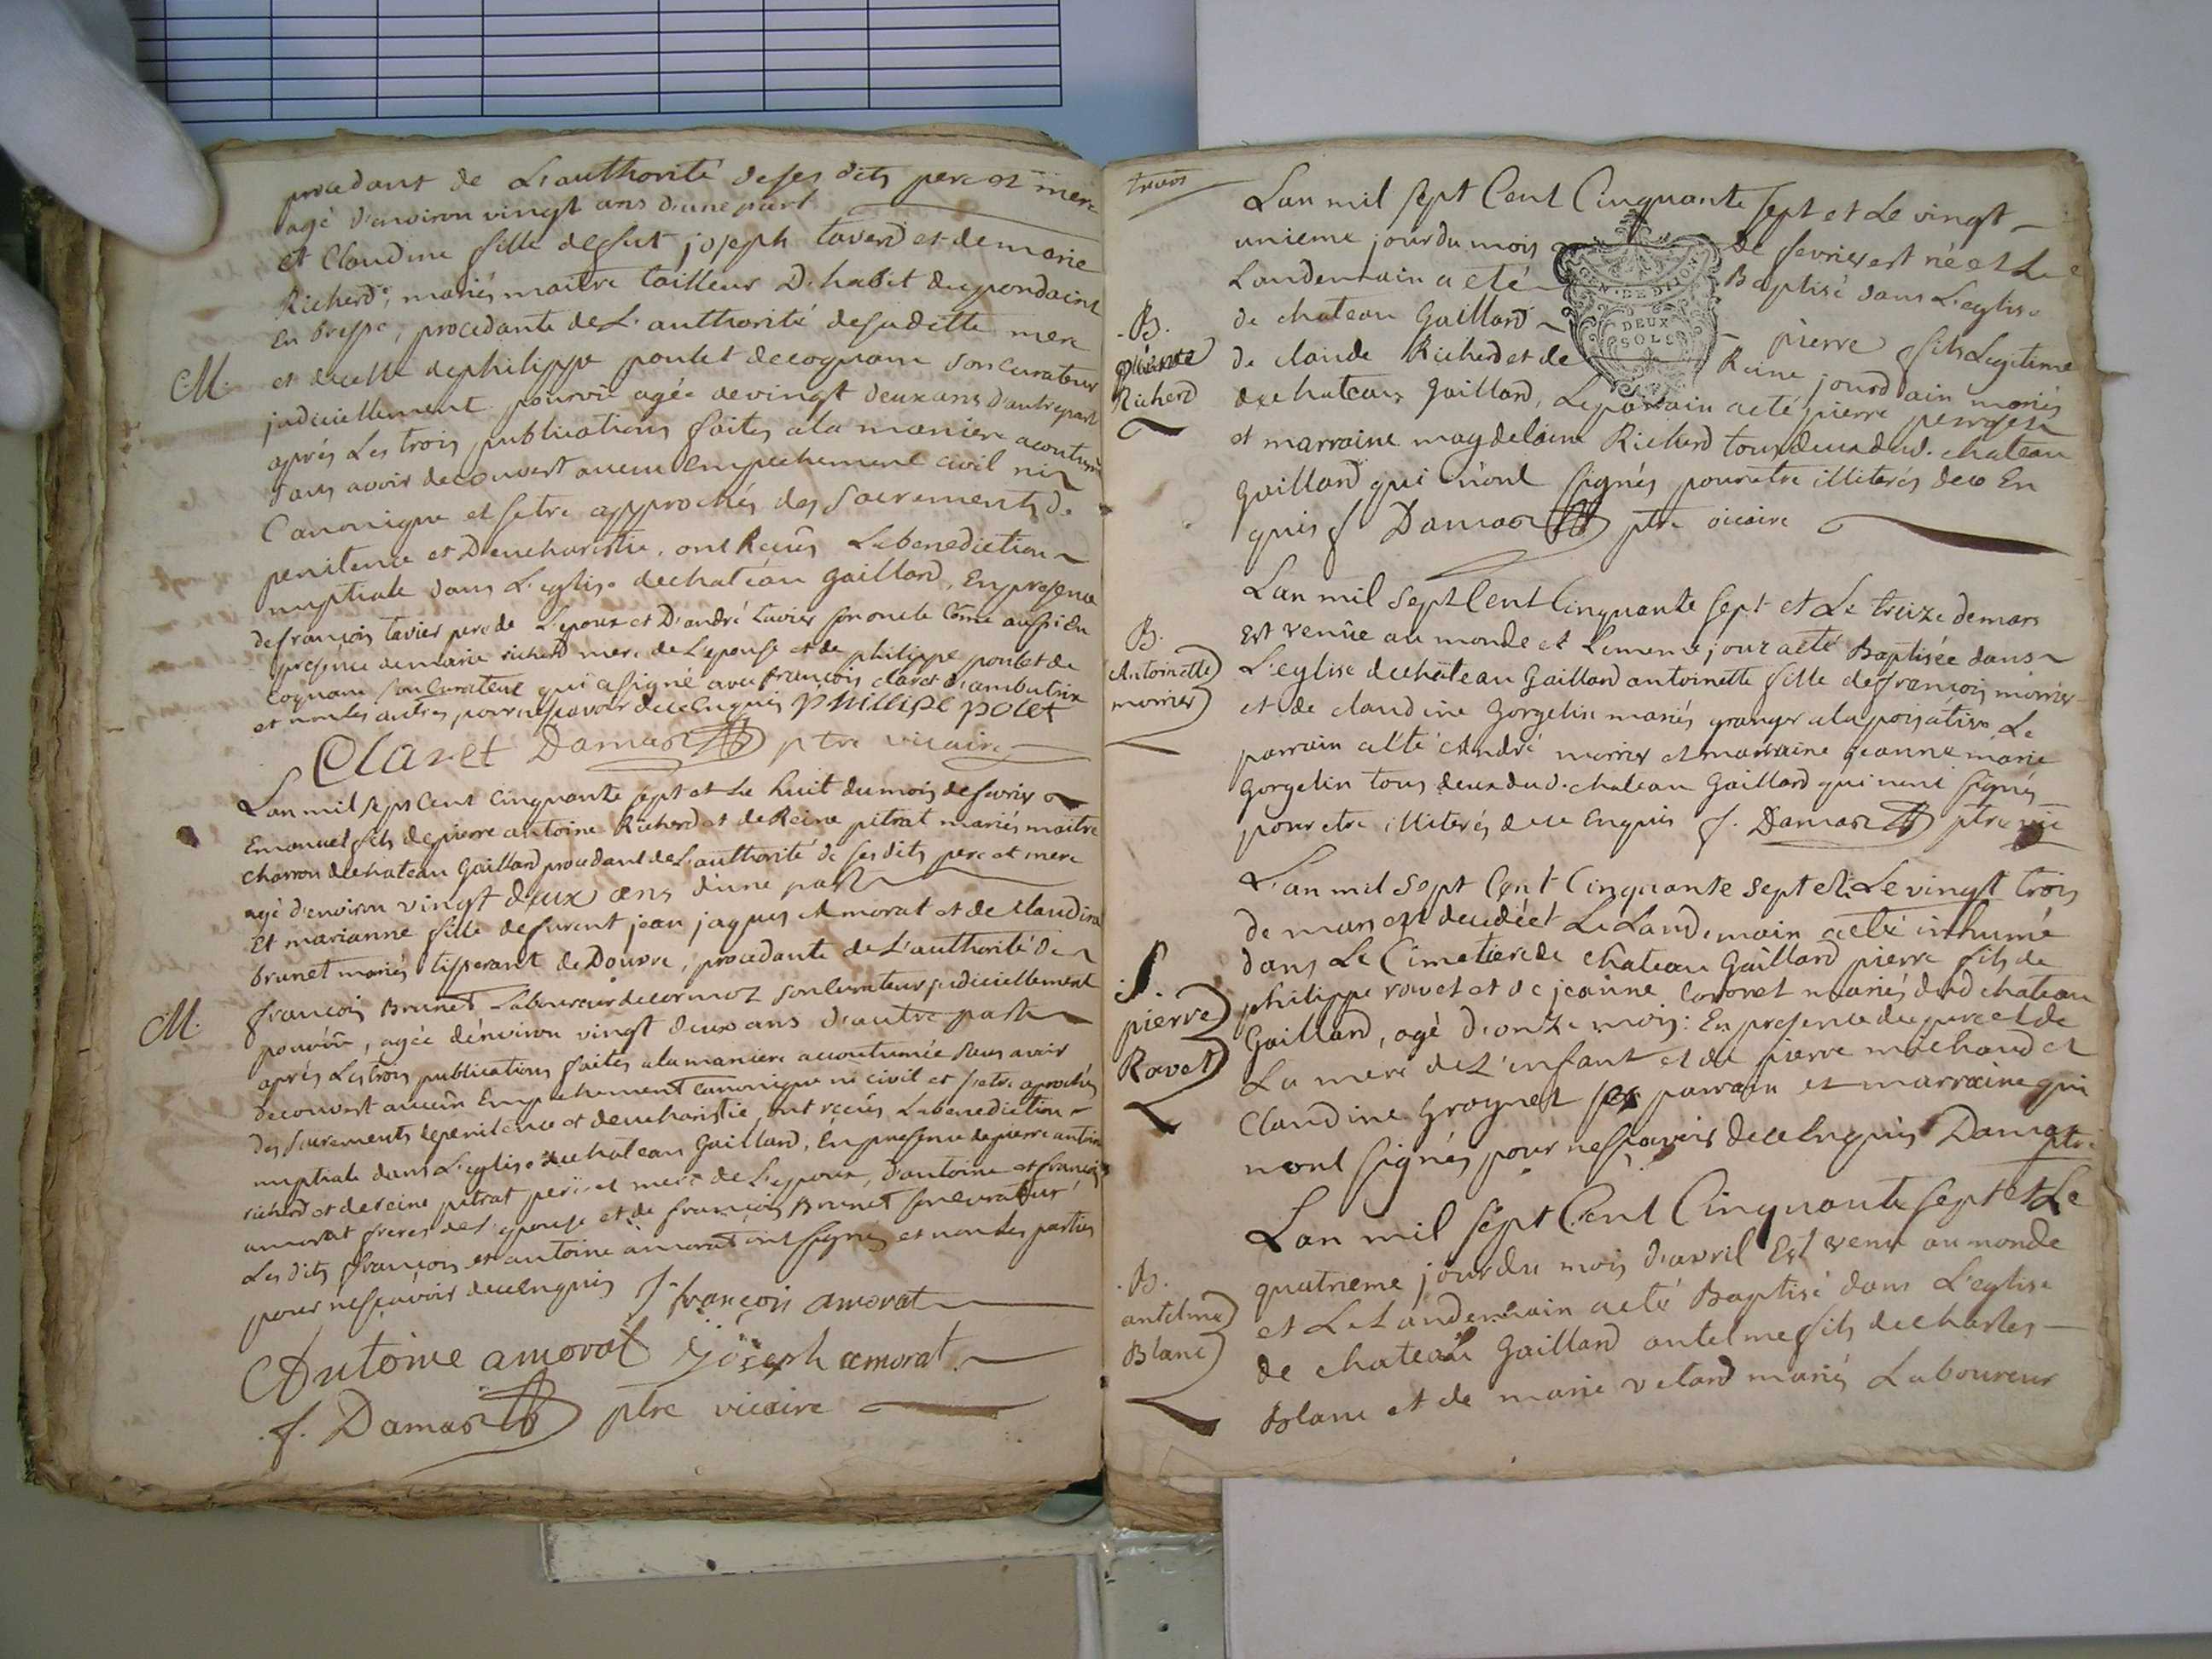 procedant de L'authorité de ses dits pere et mere
agé d'environ vingt ans d'une part
et Claudine fille de fut joseph taverd et de marie
Richerd, mariés maitre tailleur D'habit du pondaint
En bresse, procedante de L'authorité de sa ditte mere
M. et de celle de philippe poulet de coqnam son curateur
judiciellement pourvü agée de vingt deux ans d'autre part
aprés Les trois publications faites a la maniere acoutumé
sans avoir decouvert aucun empechement civil ni
Canonique et s'etre approchés des Sacrements de
penitence et D'eucharistie, ont Reçus La benediction
nuptiale dans L'eglise de chatéau Gaillard, En presence
de françois tavier pere de L'epoux et D'andré tavier son oncle Come aussi En
presence de marie richerd mere de L'epouse et de philippe poulet de
coqnam son Curateur qui a signé avec françois claret d'ambutrix
et non les autres pour ne sçavoir de ce Enquis phillipe polet
Claret Damas ptre vicaire
L'an mil sept Cent Cinquante sept et Le huit du mois de fevrier
Emanuel fils de pierre antoine Richerd et de Reine pitrat mariés maitre
charron de chateau Gaillard procedant de L'authorité de ses dits pere et mere
agé d'environ vingt deux ans d'une part
Et marianne fille de furent jean jaques Amorat et de Claudine
brunet mariés tisserant de Douvre, procedante de L'authorité de
M. françois Brunet Laboureur de cormoz son Curateur judiciellement
pourvüe, agée d'environ vingt deux ans d'autre part
aprés Les trois publications faites a la maniere accoutumée sans avoir
decouvert aucun Empechement canonique ni civil et s'etre aprochés
des sacrements de penitence et d'eucharistie, ont reçus La benediction
nuptiale dans L'eglise de chateau Gaillard, En presence de pierre antoine
richerd et de reine pitrat pere et mere de L'epoux, d'antoine et françois
amorat freres de L'epouse et de françois Brunet son curateur
Les dits françois et antoine amorat ont signés et non Les parties
pour ne sçavoir de ce Enquis f françois amorat
Antoine amorat joseph amorat
f. Damas ptre vicaire
trois
L'an mil sept Cent Cinquante sept et Le vingt
unieme jour du mois de fevrier est né et Le
Landemain a eté Baptisé dans L'eglise
B. de chateau Gaillard pierre fils Legitime
pierre de claude Richerd et de Reine jourdain mariés
Richerd de chateau Gaillard, Le parrain a eté pierre
et marraine magdelaine Richerd tous deux dud. chateau
Gaillard qui n'ont signés pour etre illiterés de ce En
quis f Damas ptre vicaire
L'an mil sept Cent Cinquante sept et Le treize de mars
B. Est venüe au monde et Le meme jour a eté Baptisée dans
Antoinette L'eglise de chateau Gaillard antoinette fille de françois morrier
morrier et de claudine Gorgelin mariés granger a la poisative Le
parrain a eté André morrier et marraine jeanne marie
Gorgelin tous deux dud. chateau Gaillard qui n'ont signés
pour etre illiterés de ce Enquis f. Damas ptre vic
L'an mil sept Cent Cinquante sept et Le vingt trois
de mars est decedé et Le Landemain a eté inhumé
S. dans Le Cimetiere de chateau Gaillard pierre fils de
pierre philippe rovet et de jeanne coronet mariés dud chateau
Rovet Gaillard, agé d'onze mois: En presence du pere et de
La mere de L'enfant et de pierre michaud et
Claudine Grognet ses parrain et marraine qui
n'ont signés pour ne sçavoir de ce Enquis Damas ptre
L'an mil sept Cent Cinquante sept et Le
B. quatrieme jour du mois d'avril Est venu au monde
antelme et Le Landemain a eté Baptisé dans L'eglise
Blanc de chateau Gaillard antelme fils de charles
Blanc et de marie velard mariés Laboureur
GEN. DE DIJON
DEUX
SOLS